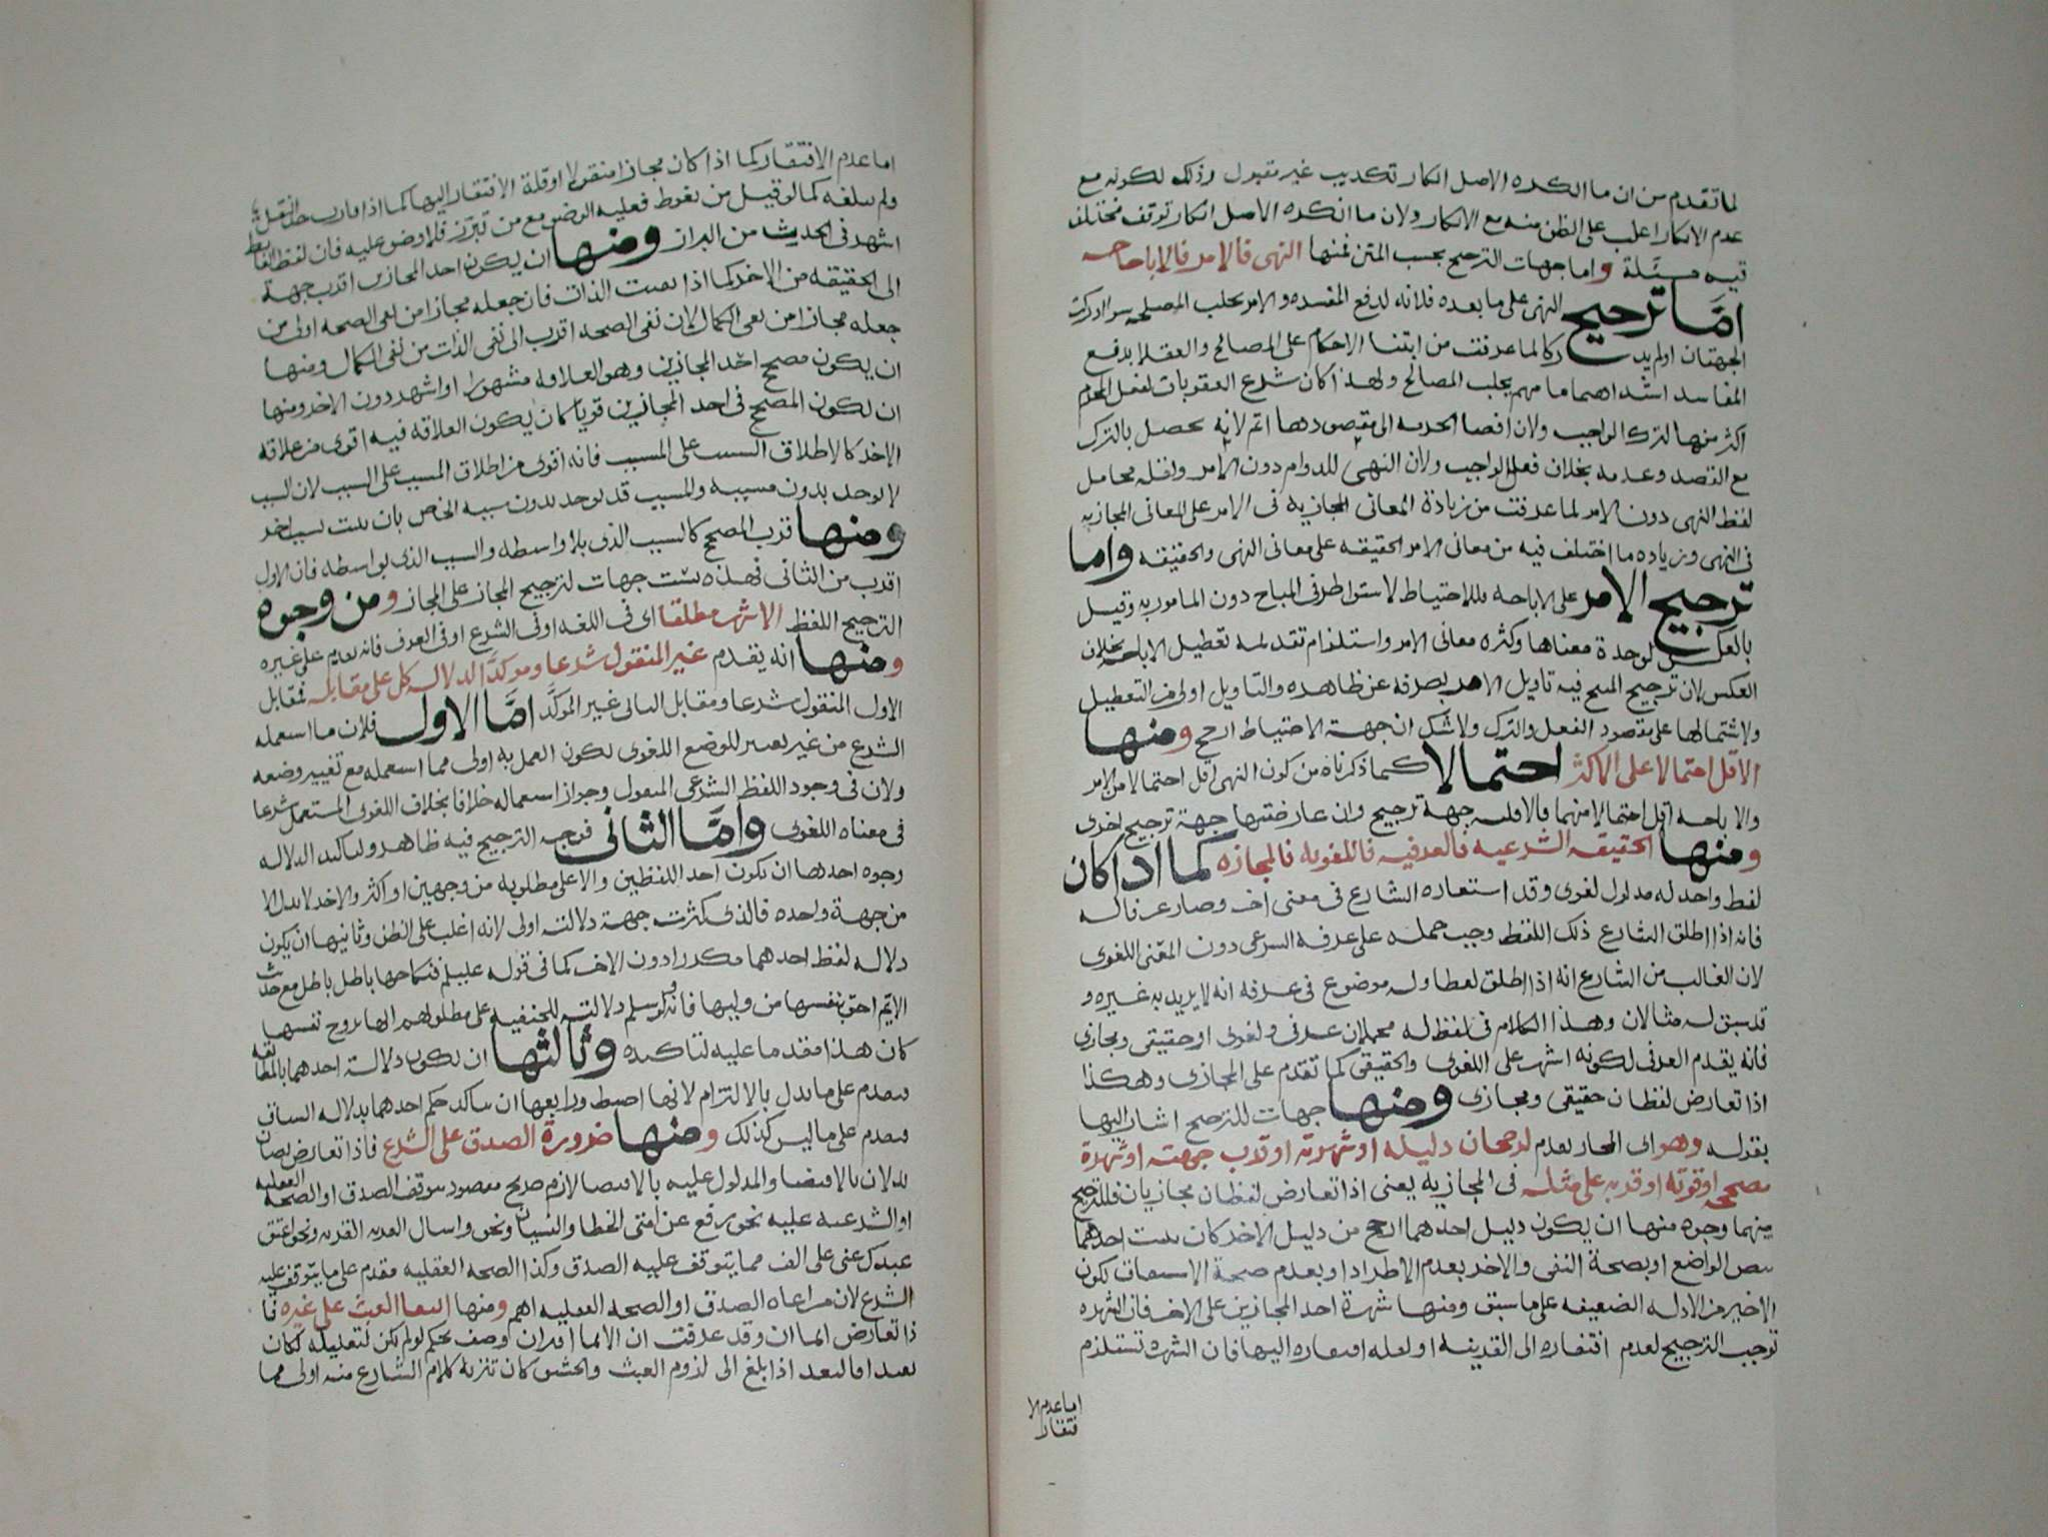 لما تقدم من ان ما انكره الاصل انكار تكذيب غير مقبول وذلك لكونه مع
عدم الانكار اغلب على الظن منه مع الانكار ولان ما انكره الاصل انكار توقف مختلف
فيه مسئلة واما جهات الترجيح بحسب المتن فمنها النهى فالامر فالاباحه
امّا ترجيح النهى على ما بعده فلانه لدفع المفسده والامر لجلب المصلحه سوا ادركت
الجهتان اولم يدركا لما عرفت من ابتنا الاحكام على المصالح والعقلا بدفع
المفاسد اشد اهتماما منهم بجلب المصالح ولهذا كان شرع العقوبات لفعل المحرم
اكثر منها لترك الواجب ولان افضا الحرمه الى مقصودها اتم لانه يحصل بالترك
مع القصد وعدمه بخلاف فعل الواجب ولان النهى للدوام دون الامر ولقله محامل
لفظ النهى دون الامر لما عرفت من زيادة المعانى المجازية فى الامر على المعانى المجازيه
فى النهى وزياده ما اختلف فيه من معانى الامر الحقيقه على معانى النهى والحقيقه واما
ترجيح الامر على الاباحه فللاحتياط لاستواطرفى المباح دون المامور به وقيل
بالعكس لوحدة معناها وكثره معانى الامر واستلزام تقديمه تعطيل الاباحه بخلاف
العكس لان ترجيح المبيح فيه تاويل الامر بصرفه عن ظاهره والتاويل اولى من التعطيل
ولاشتمالها على مقصود الفعل والترك ولا شك ان جهة الاحتياط ارجح ومنها
الاقل احتمالا على الاكثر احتمالا كما ذكرناه من كون النهى اقل احتمالا من الامر
والاباحه اقل احتمالا منهما فالاقليه جهة ترجيح وان عارضتها جهة ترجيح اخرى
ومنها الحقيقه الشرعيه فالعرفيه فاللغويه فالمجازه كما اذا كان
لفظ واحد له مدلول لغوى وقد استعاره الشارع فى معنى اخر وصار عرفا له
فانه اذا اطلق الشارع ذلك اللفظ وجب حمله على عرفه الشرعى دون المعنى اللغوى
لان الغالب من الشارع انه اذا اطلق لفظا وله موضوع فى عرفه انه لا يريد به غيره و
قد سبق له مثالان وهذا الكلام فى لفظ له محملان عرفى ولغوى او حقيقى ومجازى
فانه يقدم العرفى لكونه اشهر على اللغوى والحقيقى كما تقدم على المجازى وهكذا
اذا تعارض لفظان حقيقى ومجازى ومنها جهات للترجيح اشار اليها
بقوله وهو اى المجاز يقدم لرجحان دليله او شهرته او قرب جهته او شهرة
مصححه او قوته او قربه على مثله فى المجازيه يعنى اذا تعارض لفظان مجازيان فللترجيح
بينهما وجوه منها ان يكون دليل احدهما ارجح من دليل الاخر كان يثبت احدهما
بنص الواضع او بصحة النفى والاخر بعدم الاطراد او بعدم صحة الاشتقاق لكون
الاخير من الادله الضعيفه على ما سبق ومنها شهرة احد المجازين على الاخر فان الشهره
توجب الترجيح لعدم افتقاره الى القرينه او لقله افتقاره اليها فان الشهره تستلزم
اما عدم الا
فتقار
اما عدم الافتقار كما اذا كان مجازا منقولا او قلة الافتقار اليها كما اذا قارب حد النقل
ولم يبلغه كما لو قيل من تغوط فعليه الوضو مع من تبرّز فلا وضو عليه فان لفظ الغايط
اشهر فى الحديث من البراز ومنها ان يكون احد المجازين اقرب جهة
الى الحقيقه من الاخر كما اذا نفيت الذات فان جعله مجازا من نفى الصحه اولى من
جعله مجازا من نفى الكمال لان نفى الصحه اقرب الى نفى الذات من نفى الكمال ومنها
ان يكون مصحح احد المجازين وهو العلاقه مشهورا او اشهر دون الاخر ومنها
ان يكون المصحح فى احد المجازين قويا كان يكون العلاقه فيه اقوى من علاقه
الاخر كالاطلاق السبب على المسبب فانه اقوى من اطلاق المسبب على السبب لان السبب
لا يوجد بدون مسببه والمسبب قد يوجد بدون سببه الخاص بان يثبت لسبب اخر
ومنها قرب المصحح كالسبب الذى بلا واسطه والسبب الذى بواسطه فان الاول
اقرب من الثانى فهذه ست جهات لترجيح المجاز على المجاز ومن وجوه
الترجيح اللفظ الاشهر مطلقا اى فى اللغه او فى الشرع او فى العرف فانه يقدم على غيره
ومنها انه يقدم غير المنقول شرعا وموكدّ الدلاله كل على مقابله فمقابل
الاول المنقول شرعا ومقابل الثانى غير الموكدّ امّا الاول فلان ما استعمله
الشرع من غير تغيير للوضع اللغوى لكون العمل به اولى مما استعمله مع تغيير وضعه
ولان فى وجود اللفظ الشرعى المنقول وجواز استعماله خلافا بخلاف اللغوى المستعمل شرعا
فى معناه اللغوى وامّا الثانى فوجه الترجيح فيه ظاهر ولتاكيد الدلاله
وجوه احدها ان يكون احد اللفظين دالا على مطلوبه من وجهين او اكثر والاخر لا يدل الا
من جهة واحده فالذى كثرت جهة دلالته اولى لانه اغلب على الظن وثانيها ان يكون
دلاله لفظ احدهما مكررا دون الاخر كما فى قوله عليلم فنكاحها باطل باطل مع حديث
الايّم احق بنفسها من وليها فانه لو سلم دلالته للحنفيه على مطلوبهم انها تزوج نفسها
كان هذا مقدما عليه لتاكيده وثالثها ان يكون دلالة احدهما بالمطابقه
فيقدم على ما يدل بالالتزام لانها اضبط ورابعها ان يتاكد حكم احدهما بدلاله السياق
فيقدم على ما ليس كذلك ومنها ضرورة الصدق على الشرع فاذا تعارض نصان
يدلان بالاقتضا والمدلول عليه بالاقتضا لازم صريح مقصود يتوقف الصدق او الصحه العقليه
او الشرعيه عليه نحو رفع عن امتى الخطا والنسيان ونحو واسال القريه ونحو اعتق
عبدك عنى على الف مما يتوقف عليه الصدق وكذا الصحه العقليه مقدم على ما يتوقف عليه
الشرع لان مراعاه الصدق او الصحه العقليه اهم ومنها انتفا العبث على غيره فا
ذا تعارض ايماان وقد عرفت ان الايما اقتران وصف بحكم لو لم يكن لتعليله لكان
بعيدا فالبعد اذا بلغ الى لزوم العبث والحشو كان تنزيه كلام الشارع منه اولى مما